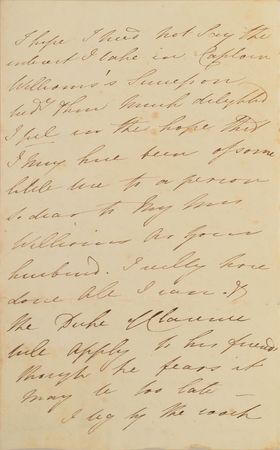 I hope I need not say the
interest I take in Captain
Williams's Succession
how much delighted
I feel in the hope that
I may have been of some
little use to a person
so dear to my Miss
Williams as your
husband. I really have
done all I can &
the Duke of Clarence
will apply to his friend
though he fears it
may be too late –
I beg by the